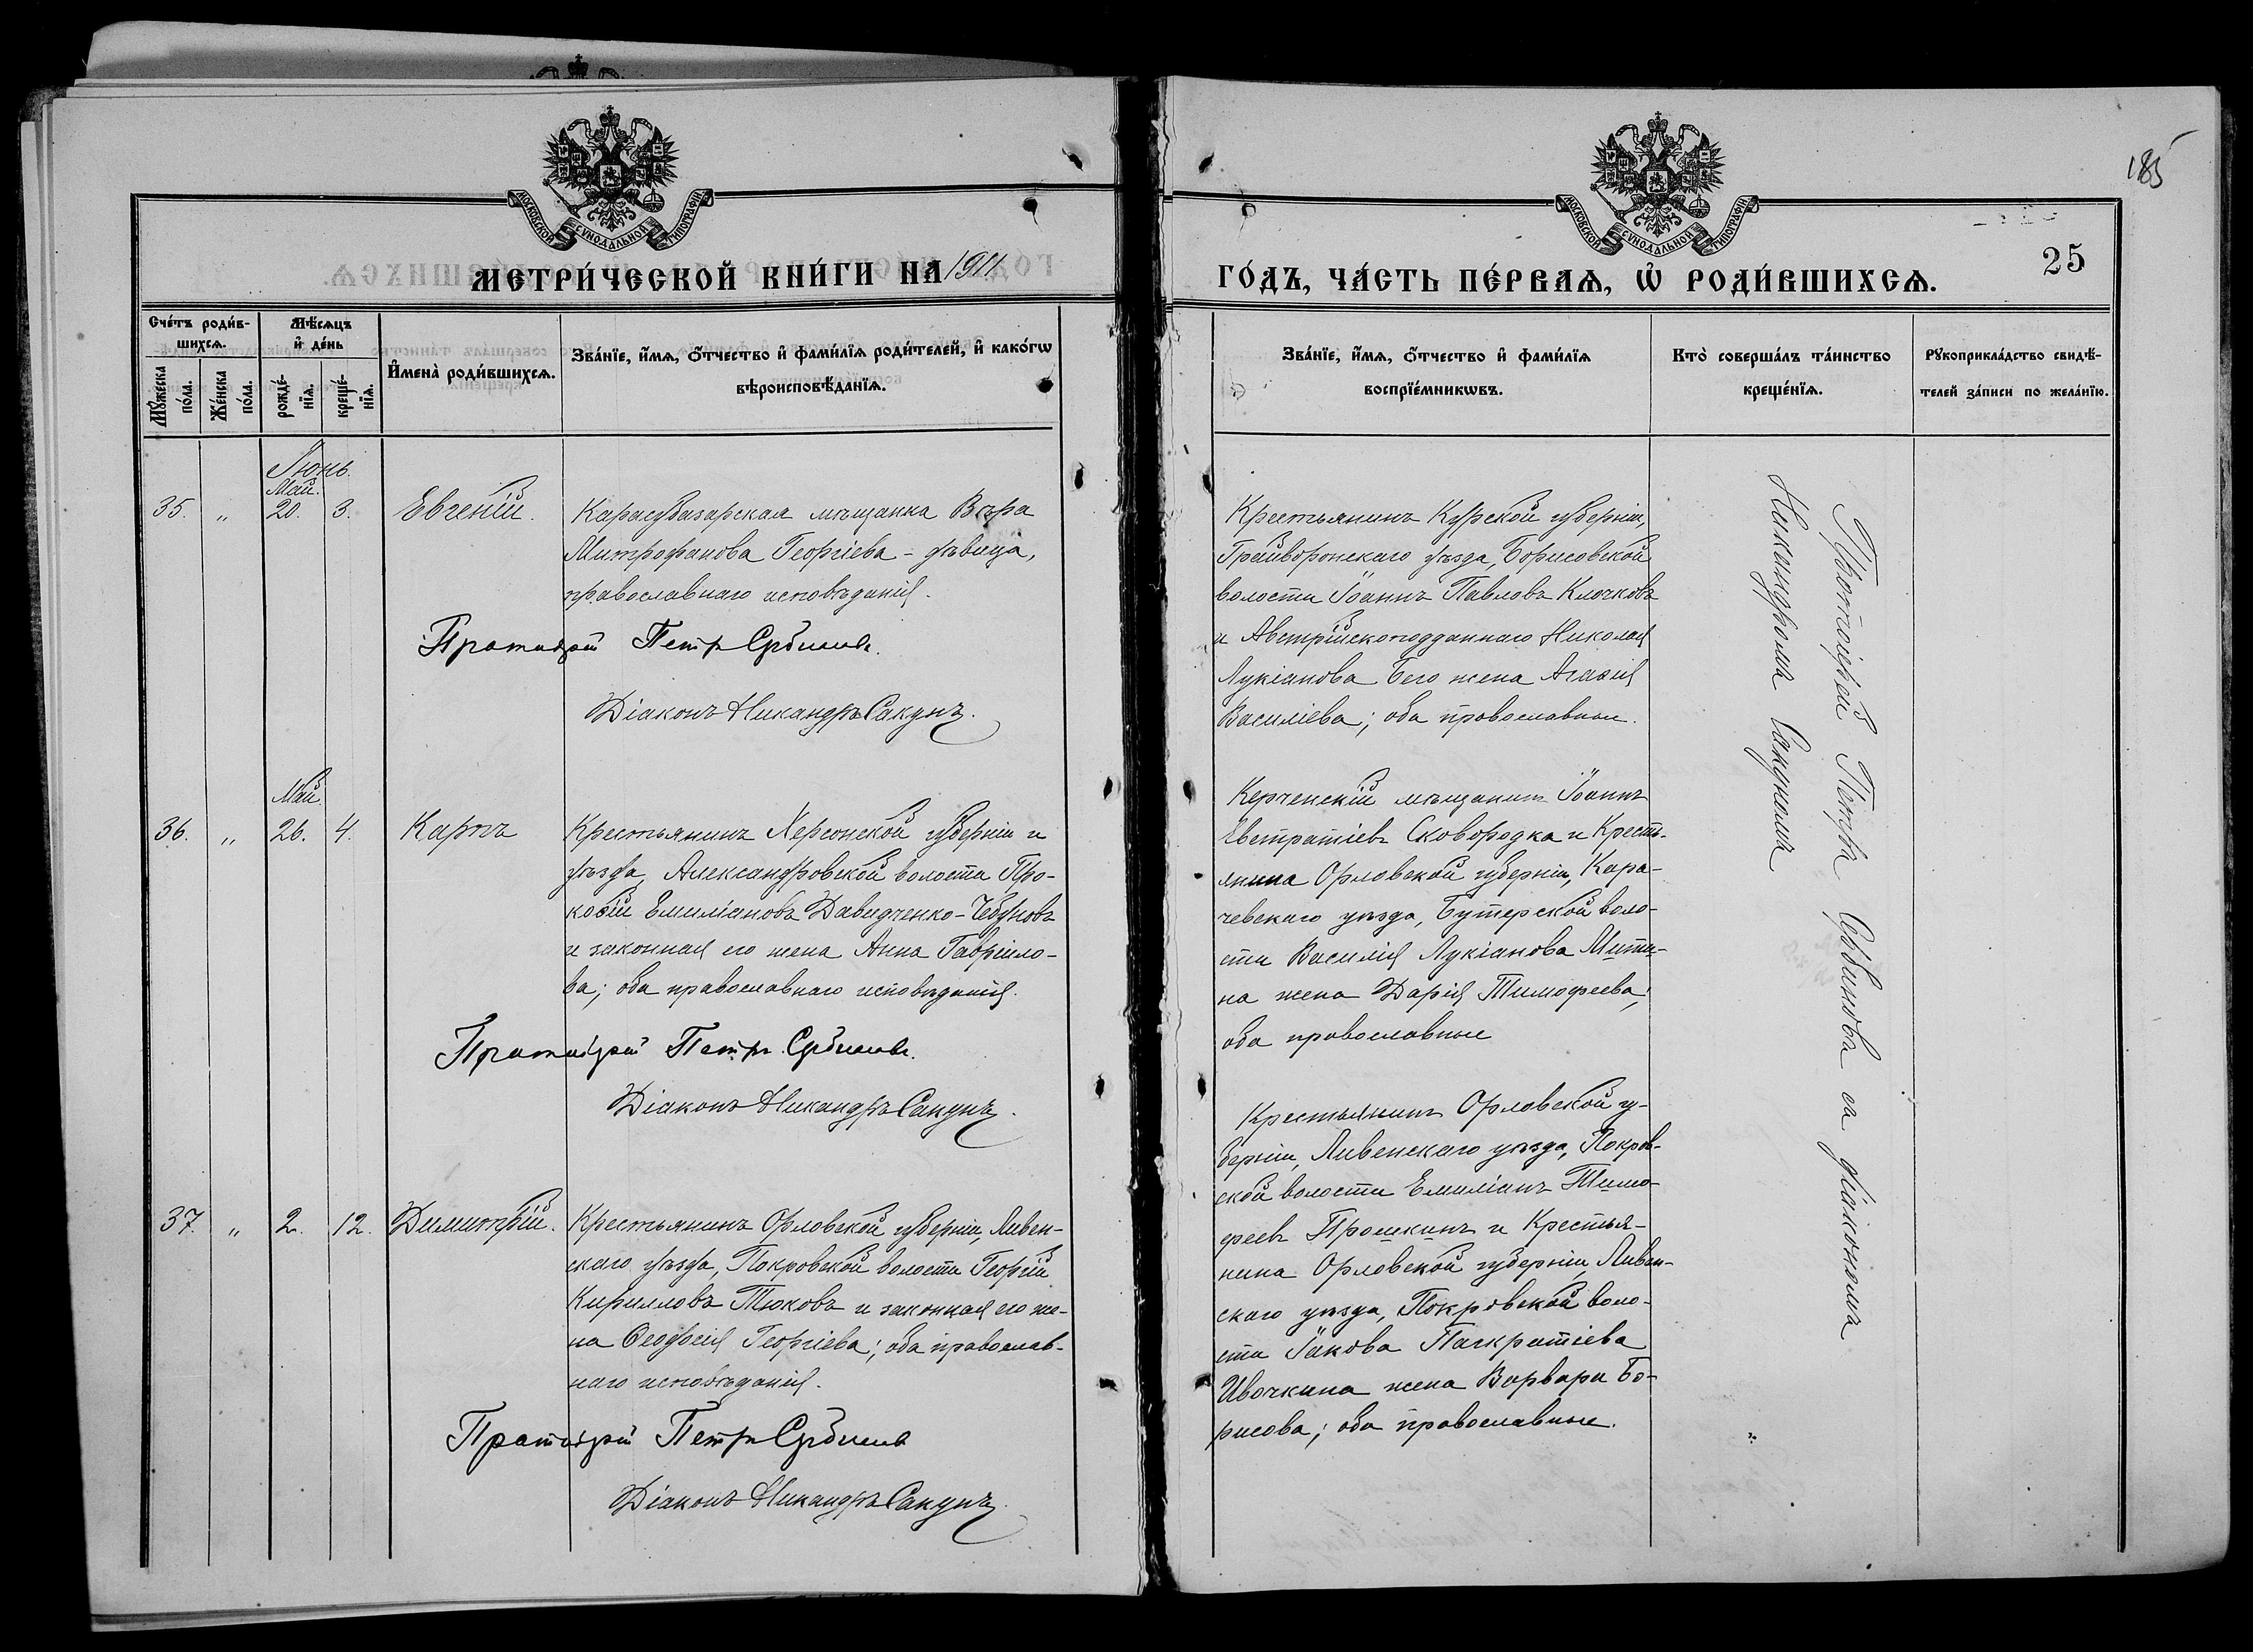 185
МОСКОВСКОЙ СѴНОДАЛЬНОЙ ТИПОГРАФІИ
МОСКОВСКОЙ СѴНОДАЛЬНОЙ ТИПОГРАФІИ
25
МЕТРИ́ЧЕСКОЙ КНИ́ГИ НА 1911
ГО́ДЪ, ЧА́СТЬ ПЕ́РВАѦ, Ѡ҆ РОДИ́ВШИХСѦ.
Сче́тъ роди́в-
шихсѧ.
Мꙋ́жеска по́ла.
Же́нска по́ла.
Мѣ́сѧцъ
и҆ де́нь
рожде́-
нїѧ.
креще́-
нїѧ.
И҆мена̀ роди́вшихсѧ.
Зва́нїе, и҆́мѧ, ѻ҆́тчество и҆ фами́лїѧ роди́телей, и҆ како́гѡ
вѣроисповѣ́данїѧ.
Зва́нїе, и҆́мѧ, ѻ҆́тчество и҆ фами́лїѧ
воспрїе́мникѡвъ.
Кто̀ соверша́лъ та́инство
креще́нїѧ.
Рꙋкоприкла́дство свидѣ́-
телей за́писи по жела́нїю.
Іюнь.
Май.
35. " 20. 3. Евгеній.
Карасубазарская мѣщанка Вѣра
Митрофанова Георгіева - дѣвица,
православнаго исповѣданія.
Протоіерей Петръ Сербиновъ.
Діаконъ Никандръ Сакунъ.
Крестьянинъ Курской губерніи,
Грайворонскаго уѣзда, Борисовской
волости Іоаннъ Павловъ Клочковъ
и Австрійскоподданнаго Николая
Лукіанова жена Агаѳія
Василіева; оба православные.
Май.
36. " 26. 4. Карпъ
Крестьянинъ Херсонской губерніи и
уѣзда, Александровской волости Про-
кофій Емиліановъ Давидченко-
и законная его жена Анна Гавріило-
ва; оба православнаго исповѣданія.
Протоіерей Петръ Сербиновъ.
Діаконъ Никандръ Сакунъ.
Керченскій мѣщанинъ Іоаннъ
Евстратіевъ Сковородка и Кресть-
янина Орловской губерніи, Кара-
чевскаго уѣзда, Бутерской воло-
сти Василія Лукіанова Мити-
на жена Дарія Тимофеева;
оба православные
37. " 2. 12. Димитрій.
Крестьянинъ Орловской губерніи, Ливен-
скаго уѣзда, Покровской волости Георгій
Кирилловъ Тюковъ и законная его же-
на Ѳеодосія Георгіева; оба православ-
наго исповѣданія.
Протоіерей Петръ Сербиновъ
Діаконъ Никандръ Сакунъ.
Крестьянинъ Орловской гу-
берніи, Ливенскаго уѣзда, Покров-
ской волости Емиліанъ Тимо-
феевъ Прошкинъ и Крестья-
нина Орловской губерніи, Ливен-
скаго уѣзда, Покровской воло-
сти Іакова Панкратіева
Ивочкина жена Варвара Бо-
рисова; оба православные.
Протоіерей Петръ Сербиновъ съ діакономъ
Никандромъ Сакуномъ